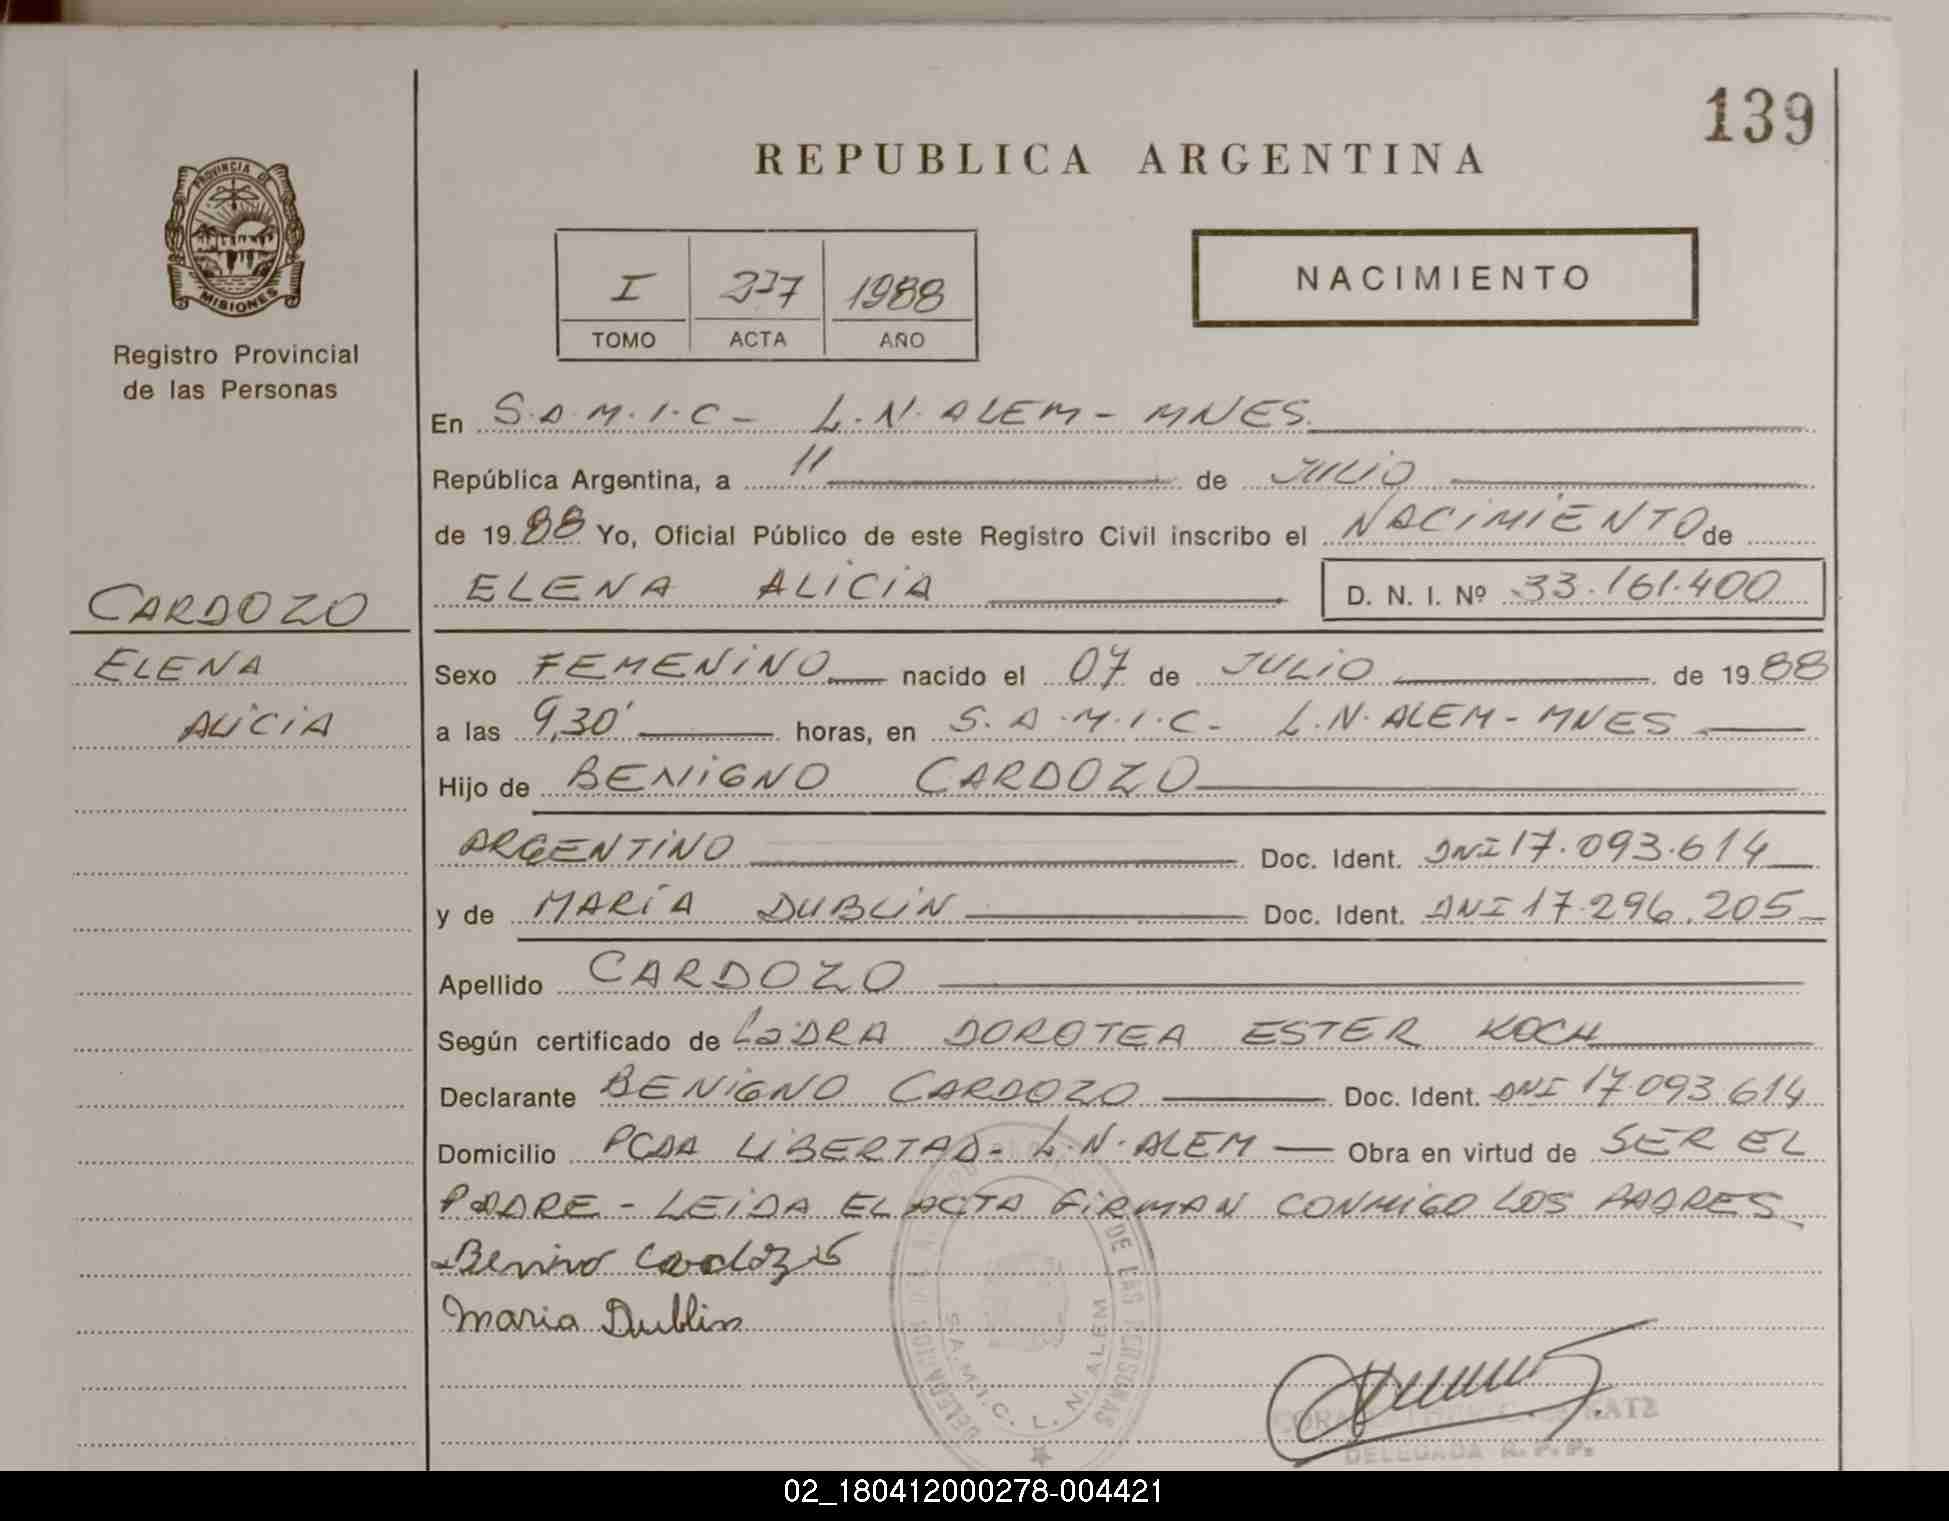 139
REPUBLICA ARGENTINA
PROVINCIA DE
MISIONES
Registro Provincial
de las Personas
I 277 1988
TOMO ACTA AÑO
NACIMIENTO
En S.A.M.I.C- L.N. ALEM- MNES.
República Argentina, a 11 de JULIO
de 1988 Yo, Oficial Público de este Registro Civil inscribo el NACIMIENTO de
ELENA ALICIA D. N. I. Nº 33.161.400
CARDOZO
ELENA
ALICIA
Sexo FEMENINO nacido el 07 de JULIO de 1988
a las 9,30' horas, en S.A.M.I.C- L.N. ALEM- MNES
Hijo de BENIGNO CARDOZO
ARGENTINO Doc. Ident. DNI 17.093.614
y de MARÍA DUBLIN Doc. Ident. DNI 17.296.205
Apellido CARDOZO
Según certificado de DOROTEA ESTER KOCH
Declarante BENIGNO CARDOZO Doc. Ident. DNI 17.093.614
Domicilio PCDA LIBERTAD- L.N. ALEM Obra en virtud de SER EL
PADRE - LEIDA EL ACTA FIRMAN CONMIGO LOS PADRES
Benino Cardozo
Maria Dublin
DE LAS PERSONAS
S.A.M.I.C. L. N. ALEM
DELEGADA R. P. P.
02_180412000278-004421